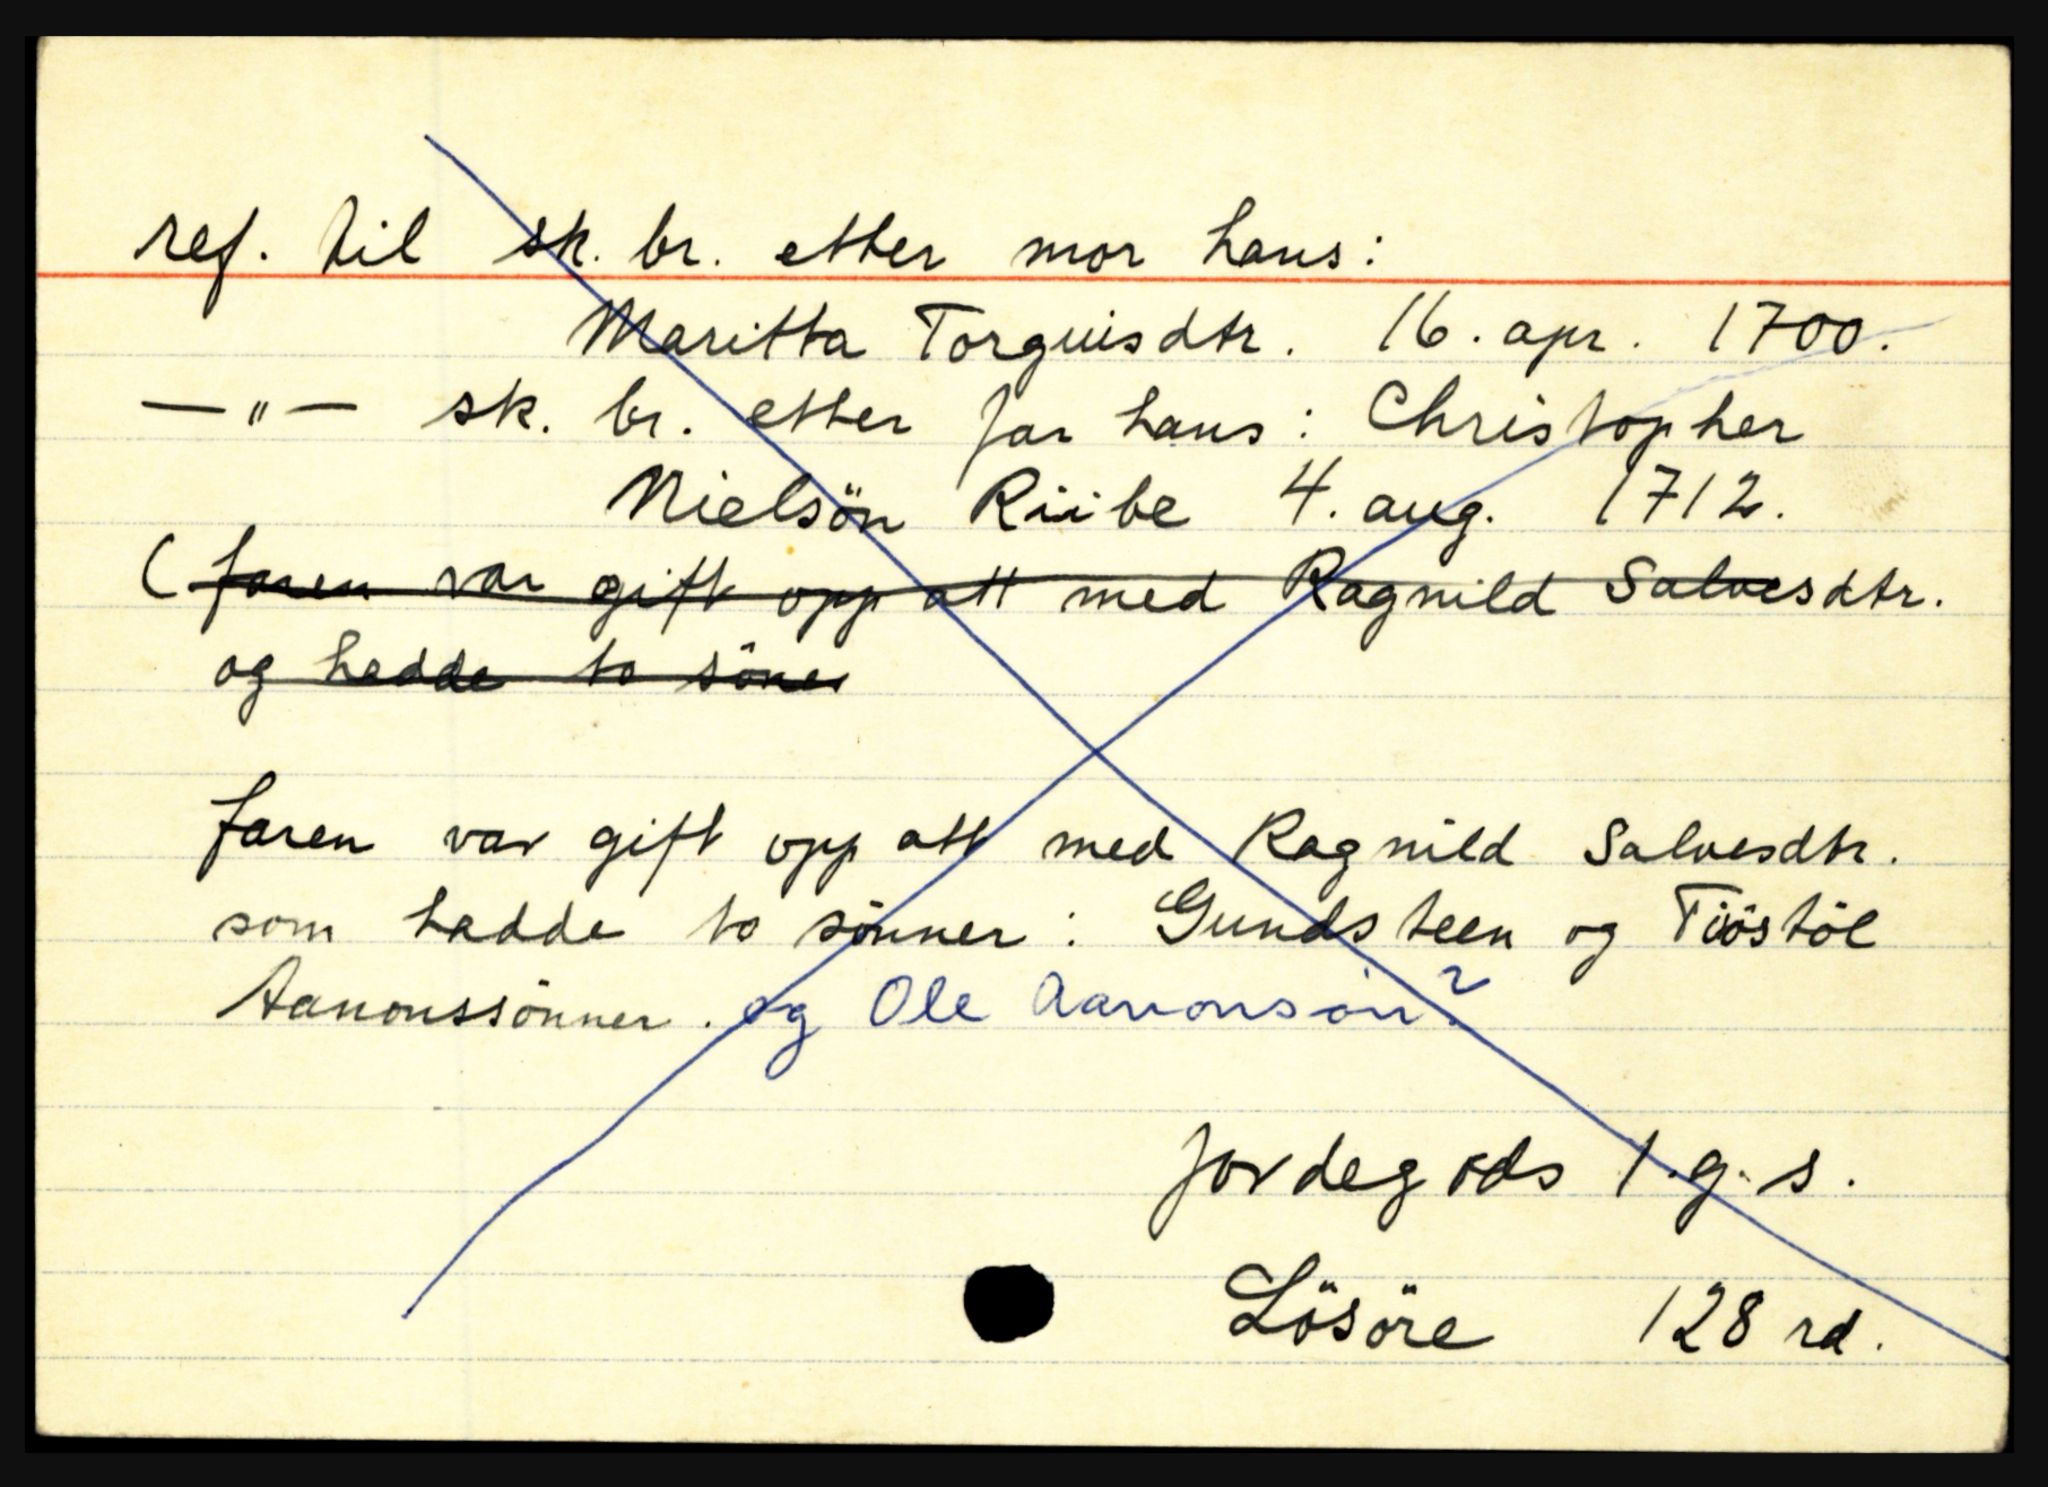 ref. til sk. br. etter mor hans:
Maritta Torguisdtr. 16. apr. 1700.
— " — sk. br. etter far hans: Christopher
Nielsön Riibe 4. aug. 1712.
( faren var gift opp att med Ragnild Salvesdtr.
og hadde to söner
faren var gift opp att med Ragnild Salvesdtr.
som hadde to sönner: Gundsteen og Tiöstöl
Aanonssönner. og Ole Aanonsön?
Jordegods 1.g.s.
Lösöre 128 rd.